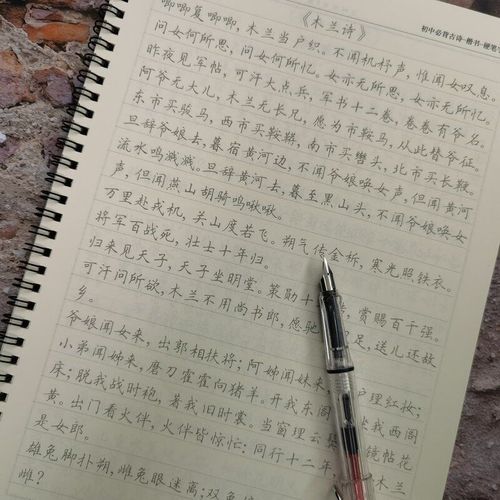 《木兰诗》
初中必背古诗-楷书-硬笔
唧唧复唧唧，木兰当户织。不闻机杼声，惟闻女叹息。
问女何所思，问女何所忆。女亦无所思，女亦无所忆。
昨夜见军帖，可汗大点兵，军书十二卷，卷卷有爷名。
阿爷无大儿，木兰无长兄，愿为市鞍马，从此替爷征。
东市买骏马，西市买鞍鞯，南市买辔头，北市买长鞭。
旦辞爷娘去，暮宿黄河边，不闻爷娘唤女声，但闻黄河
流水鸣溅溅。旦辞黄河去，暮至黑山头，不闻爷娘唤女
声，但闻燕山胡骑鸣啾啾。
万里赴戎机，关山度若飞。朔气传金柝，寒光照铁衣。
将军百战死，壮士十年归。
归来见天子，天子坐明堂。策勋十 赏赐百千强。
可汗问所欲，木兰不用尚书郎，愿驰 足，送儿还故
乡。
爷娘闻女来，出郭相扶将；阿姊闻妹来 户理红妆；
小弟闻姊来，磨刀霍霍向猪羊。开我东阁 坐我西阁
床；脱我战时袍，著我旧时裳。当窗理云 镜帖花
黄。出门看火伴，火伴皆惊忙：同行十二年， 木兰
是女郎。
雄兔脚扑朔，雌兔眼迷离；双兔
雌？